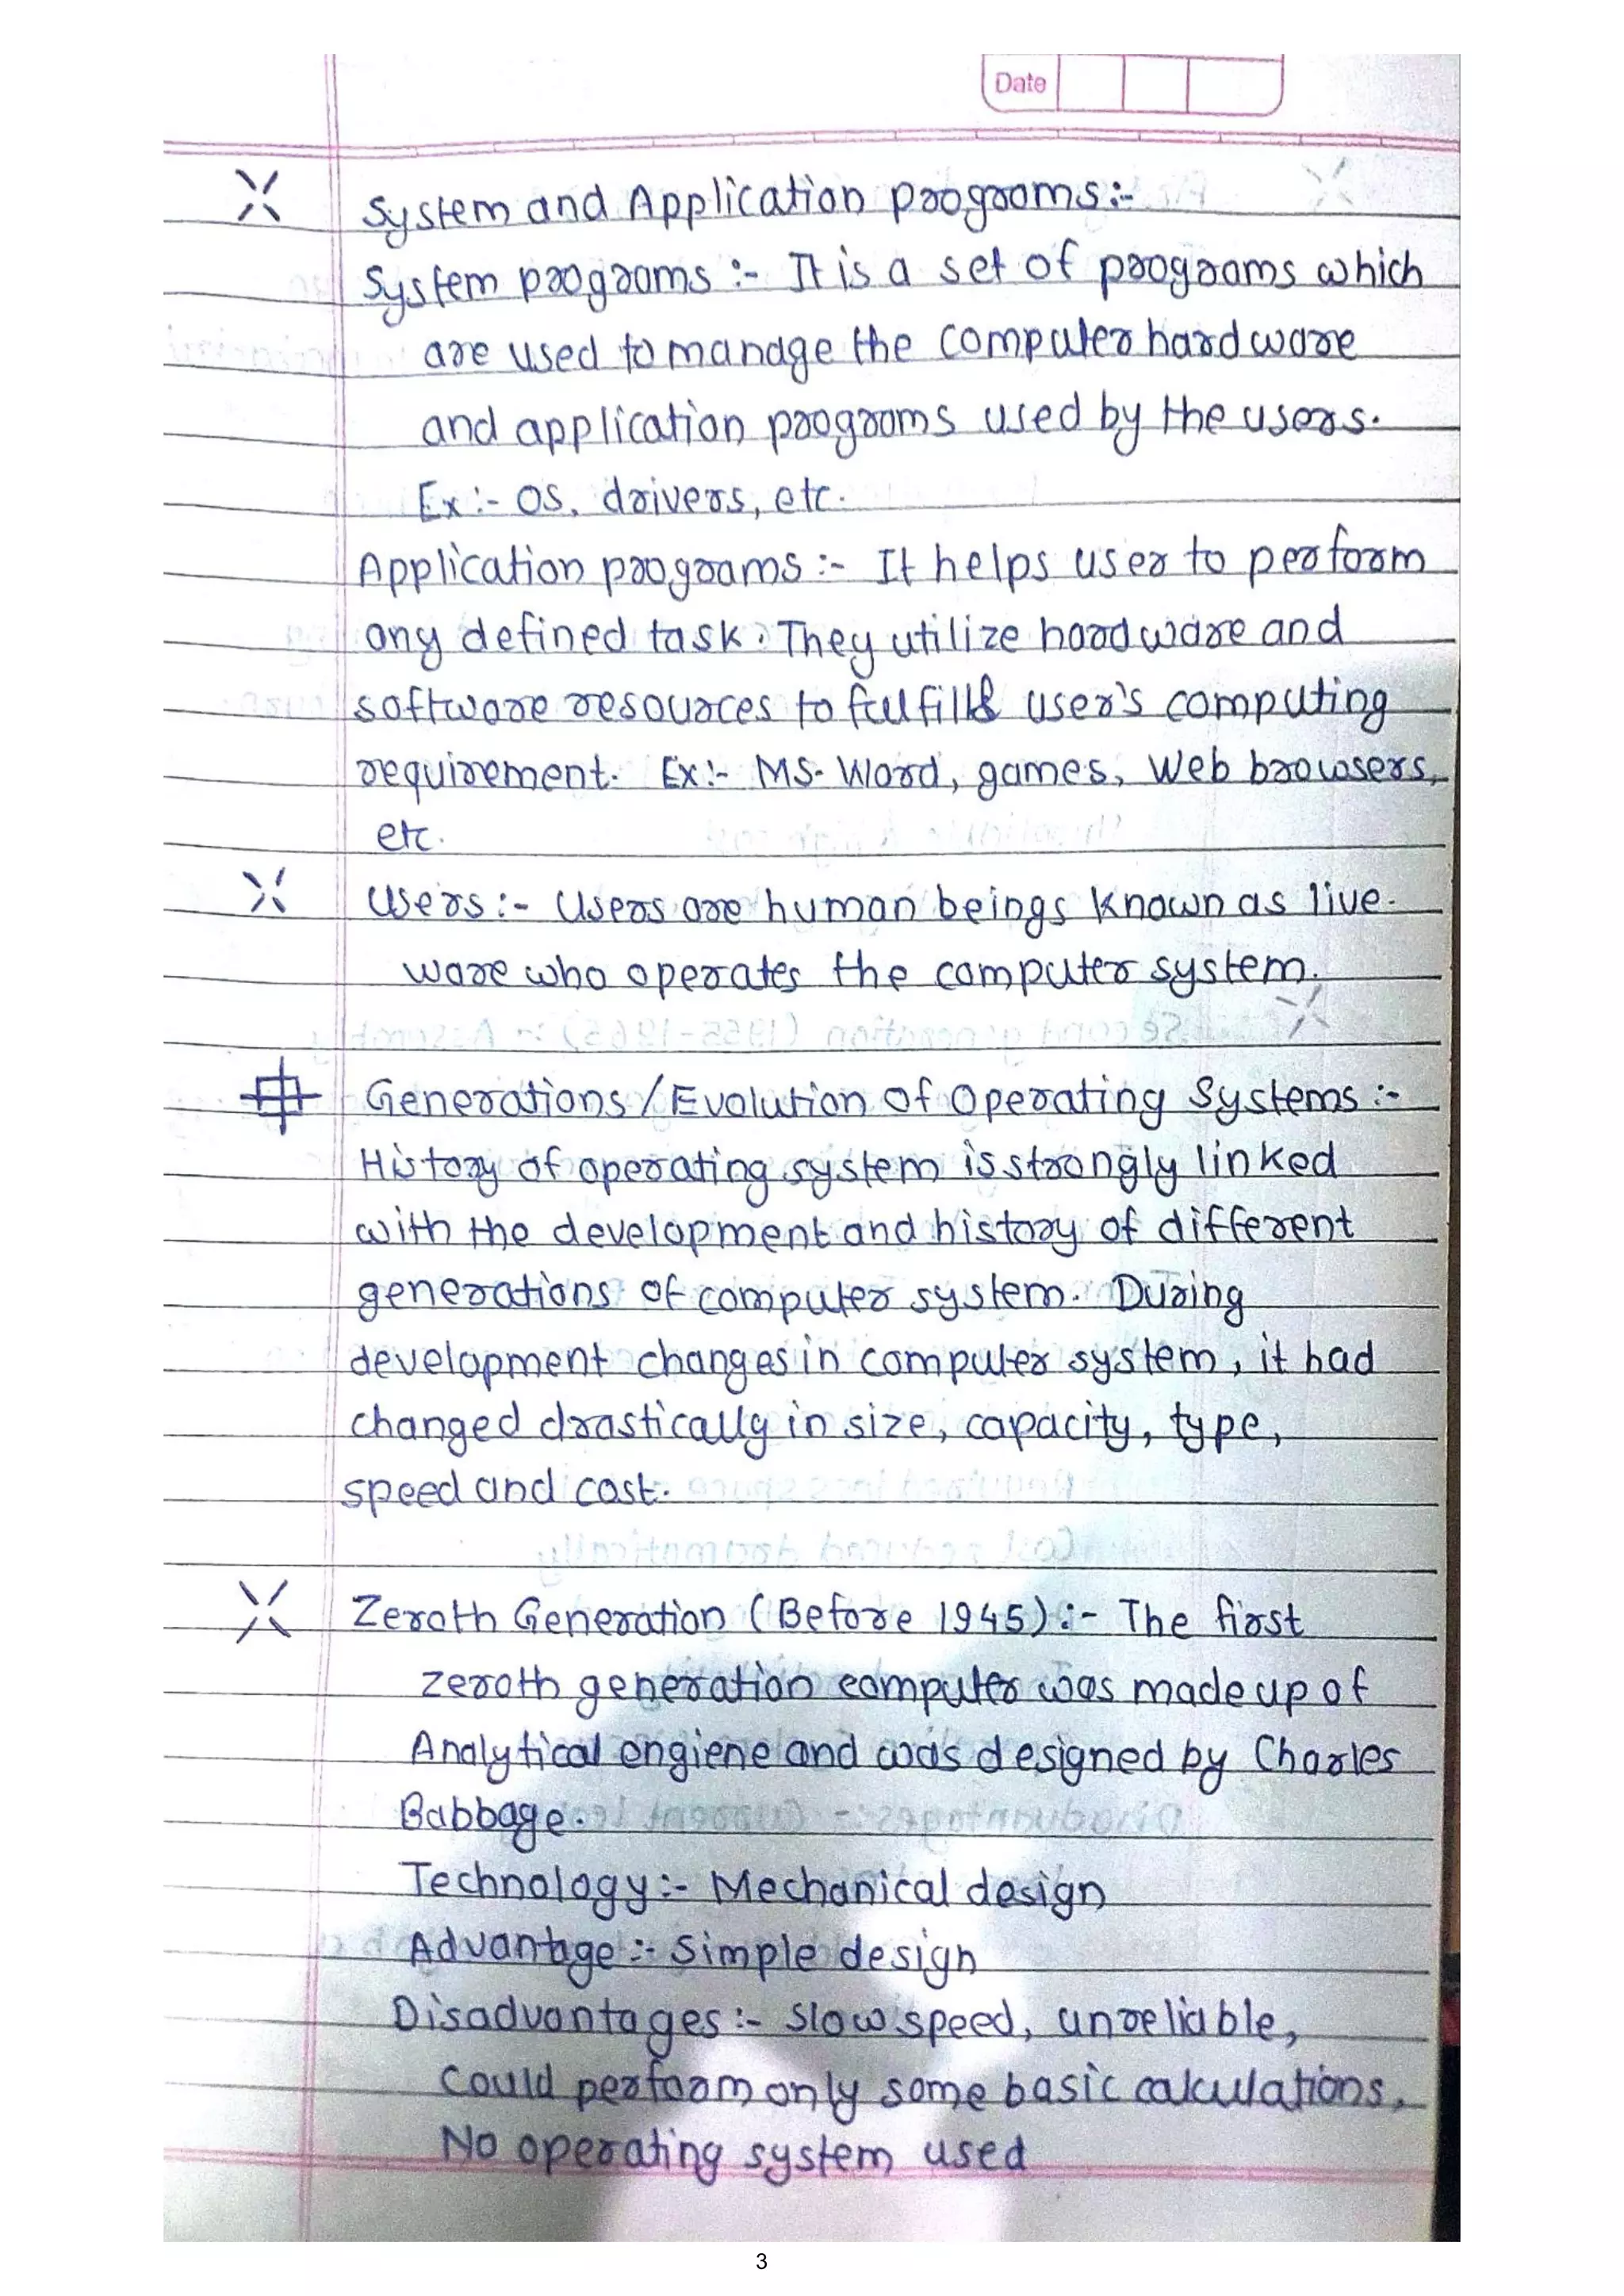 Date
System and Application programs:-
System programs :- It is a set of programs which
are used to manage the computer hardware
and application programs used by the users.
Ex:- OS, drivers, etc.
Application programs :- It helps user to perform
any defined task. They utilize hardware and
software resources to fulfill user's computing
requirement. Ex:- MS-Word, games, Web browsers,
etc.
Users:- Users are human beings known as live-
ware who operates the computer system.
Generations/Evolution of Operating Systems :-
History of operating system is strongly linked
with the development and history of different
generations of computer system. During
development changes in computer system, it had
changed drastically in size, capacity, type,
speed and cost.
Zeroth Generation (Before 1945):- The first
zeroth generation computer was made up of
Analytical engiene and was designed by Charles
Babbage.
Technology:- Mechanical design
Advantage :- Simple design
Disadvantages:- Slow speed, unreliable,
Could perform only some basic calculations,
No operating system used
3